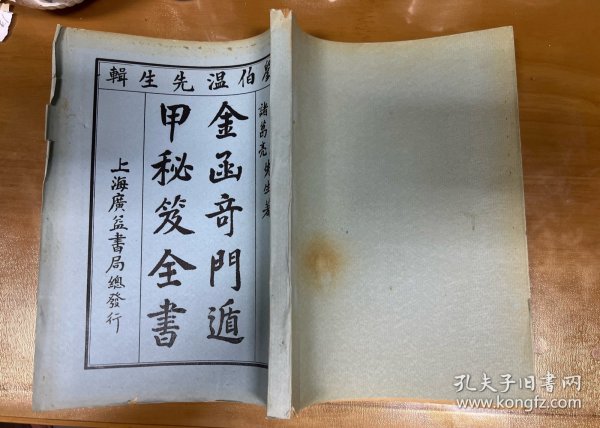 劉伯温先生輯
諸葛亮先生著
金函奇門遁
甲秘笈全書
上海廣益書局總發行
孔夫子旧书网
www.kongfz.com